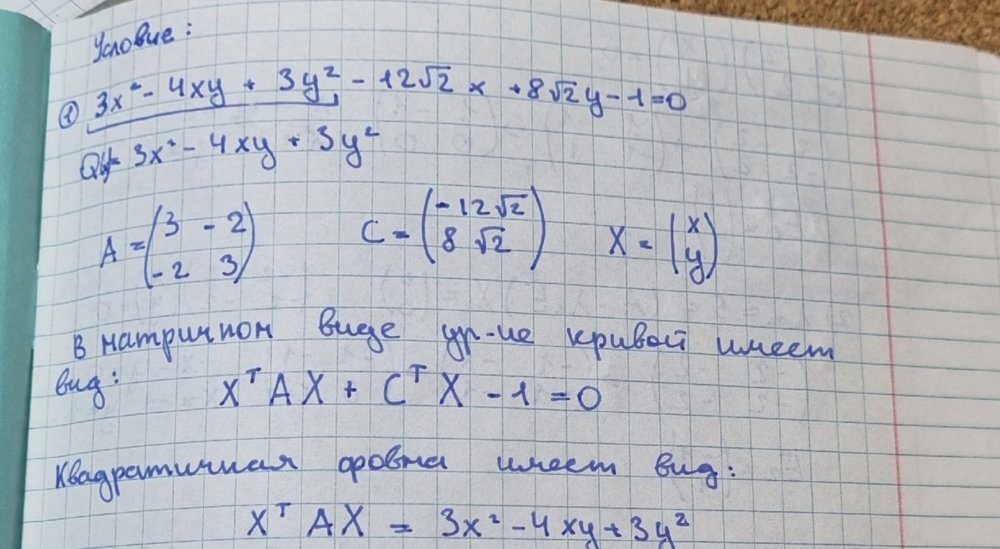 Условие:
① 3x² - 4xy + 3y² - 12√2 x + 8√2y - 1 = 0
3x² - 4xy + 3y²
A = (3 -2; -2 3) C = (-12√2; 8√2) X = (x; y)
В матричном виде ур-ие кривой имеет
вид:
XᵀAX + CᵀX - 1 = 0
Квадратичная форма имеет вид:
XᵀAX = 3x² - 4xy + 3y²